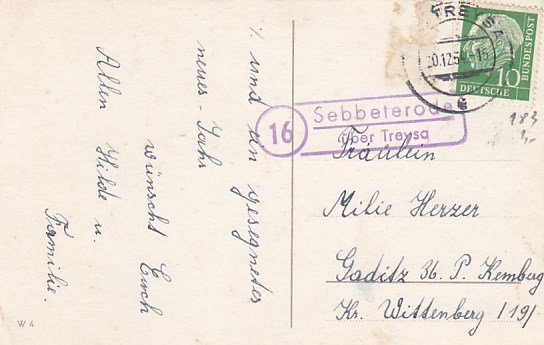 ./. und ein gesegnetes
neues - Jahr
wünscht Euch
Allen Hilde u.
Familie.
W 4
TREYSA
20.12.54
DEUTSCHE
BUNDESPOST
10
16
Sebbeterode
über Treysa
183
Fräulein
Milie Herzer
Gaditz 36. P. Kemberg
Kr. Wittenberg /19/